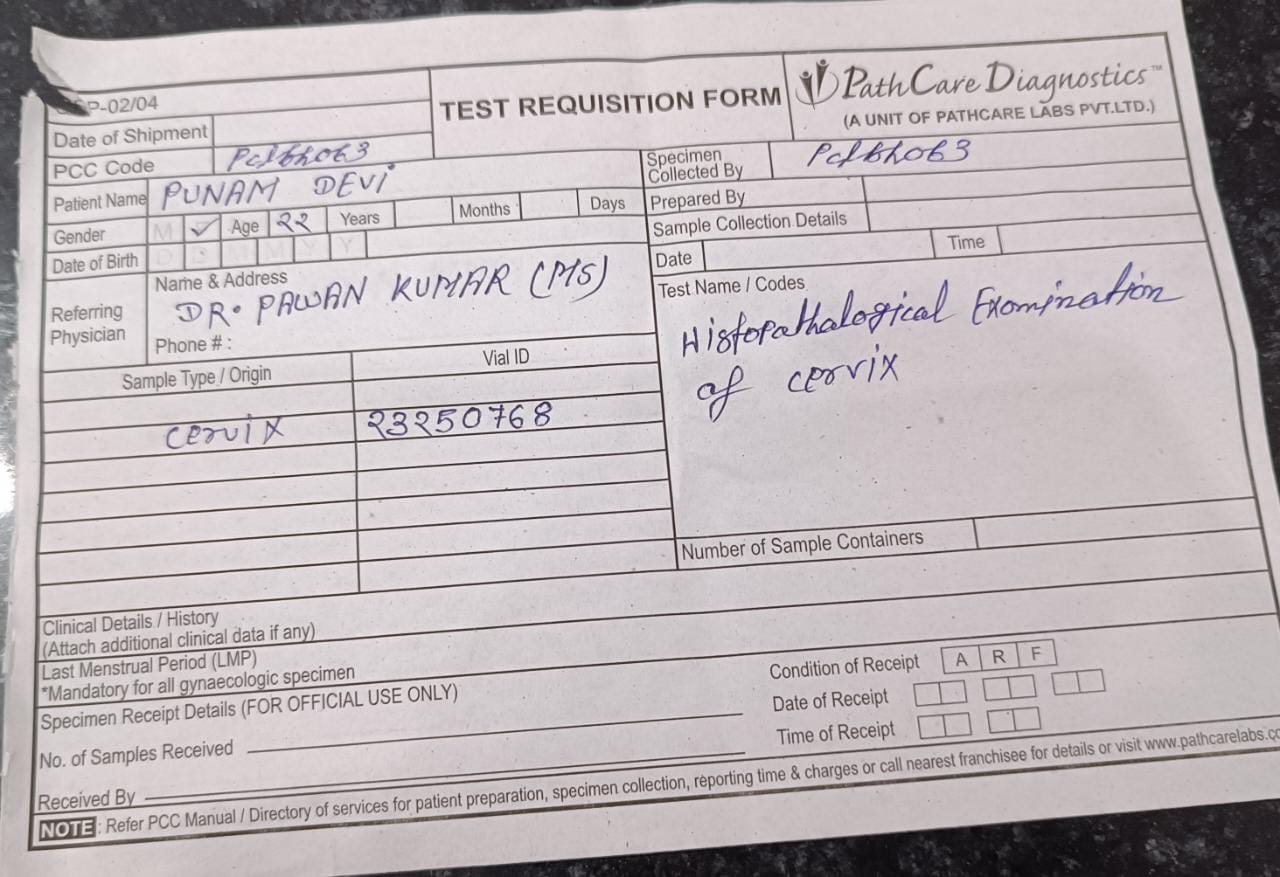 P-02/04
TEST REQUISITION FORM
PathCare Diagnostics™
(A UNIT OF PATHCARE LABS PVT.LTD.)
Date of Shipment
PCC Code
Specimen Collected By
Patient Name PUNAM DEVI
Prepared By
Gender M ✓ Age 22 Years Months Days
Sample Collection Details
Date of Birth D D M M Y Y
Date Time
Referring Physician
Name & Address
DR. PAWAN KUMAR (MS)
Phone # :
Test Name / Codes
Histopathalogical Examination
of cervix
Sample Type / Origin Vial ID
cervix 23250768
Number of Sample Containers
Clinical Details / History
(Attach additional clinical data if any)
Last Menstrual Period (LMP)
*Mandatory for all gynaecologic specimen
Specimen Receipt Details (FOR OFFICIAL USE ONLY)
Condition of Receipt A R F
Date of Receipt
No. of Samples Received
Time of Receipt
Received By
NOTE : Refer PCC Manual / Directory of services for patient preparation, specimen collection, reporting time & charges or call nearest franchisee for details or visit www.pathcarelabs.co